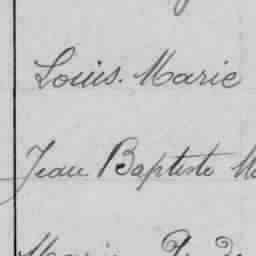 Louis. Marie
Jean Baptiste
Marie